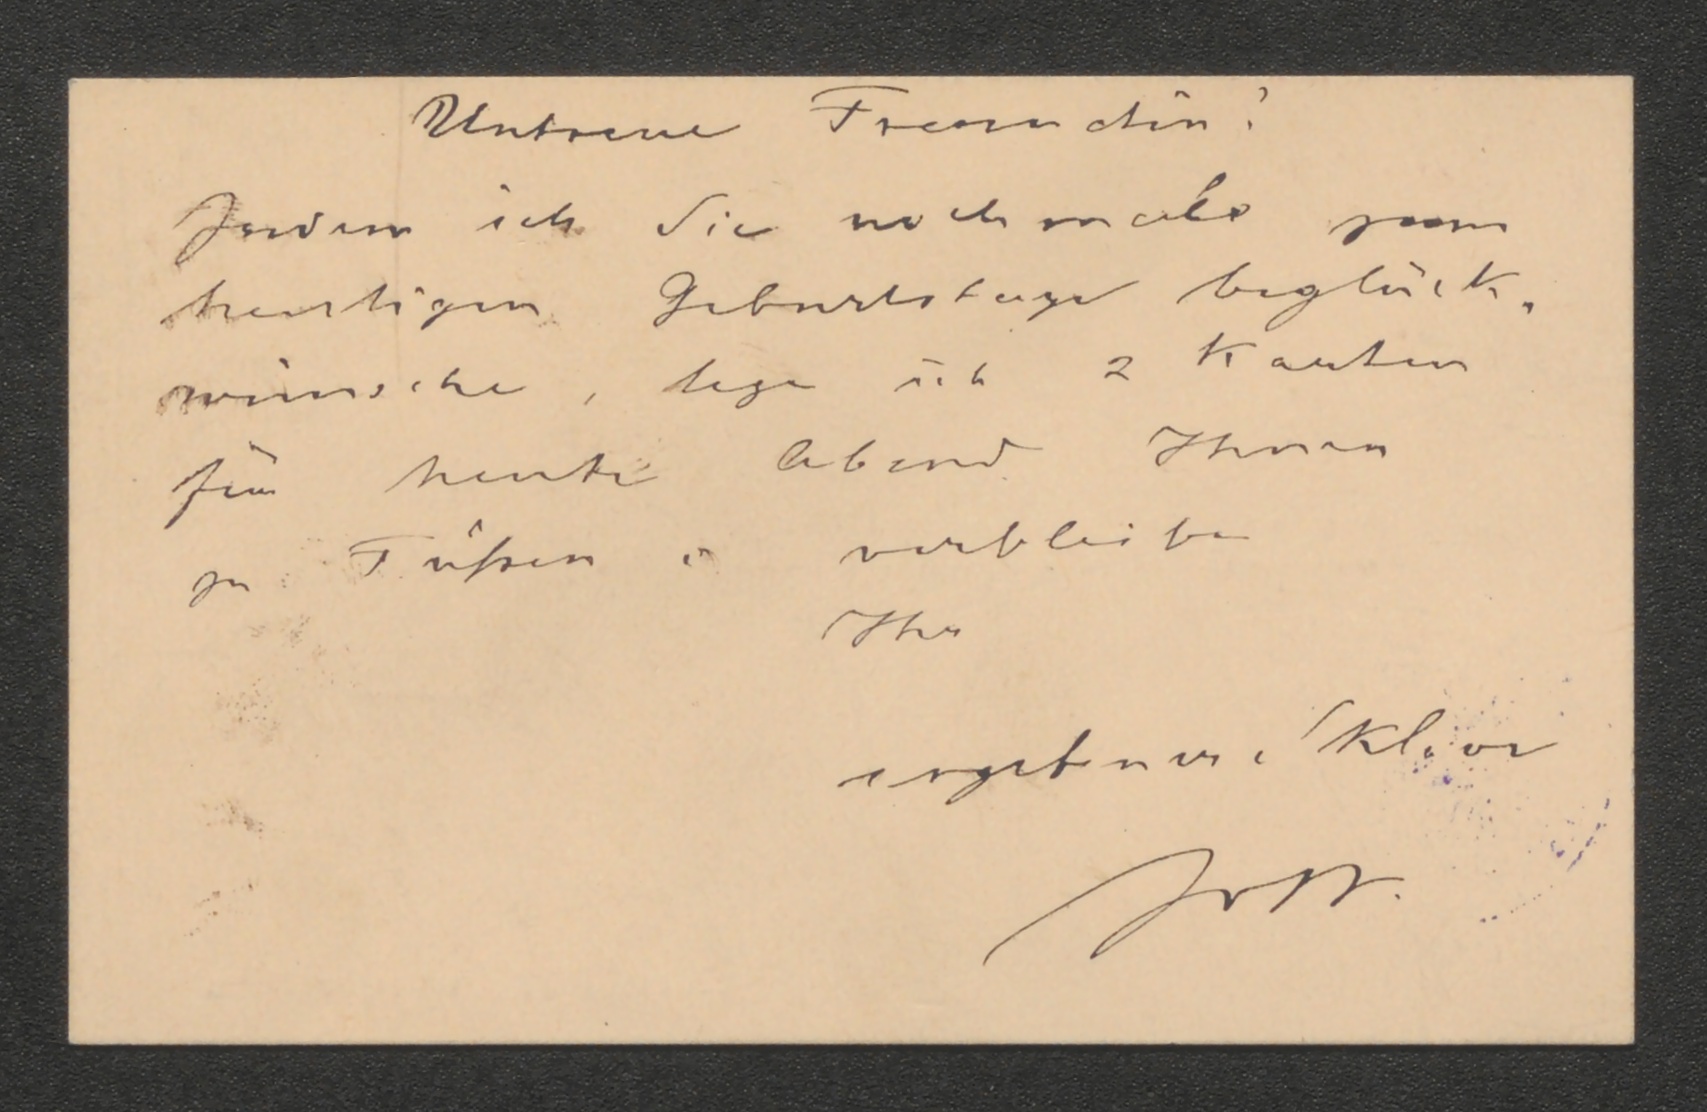 Untreue Freundin!
Indem ich Sie nochmals zum
heutigen Geburtstage beglück-
wünsche, lege ich 2 Karten
für heute Abend Ihnen
zu Füßen u verbleibe
Ihr
ergebener Sklave